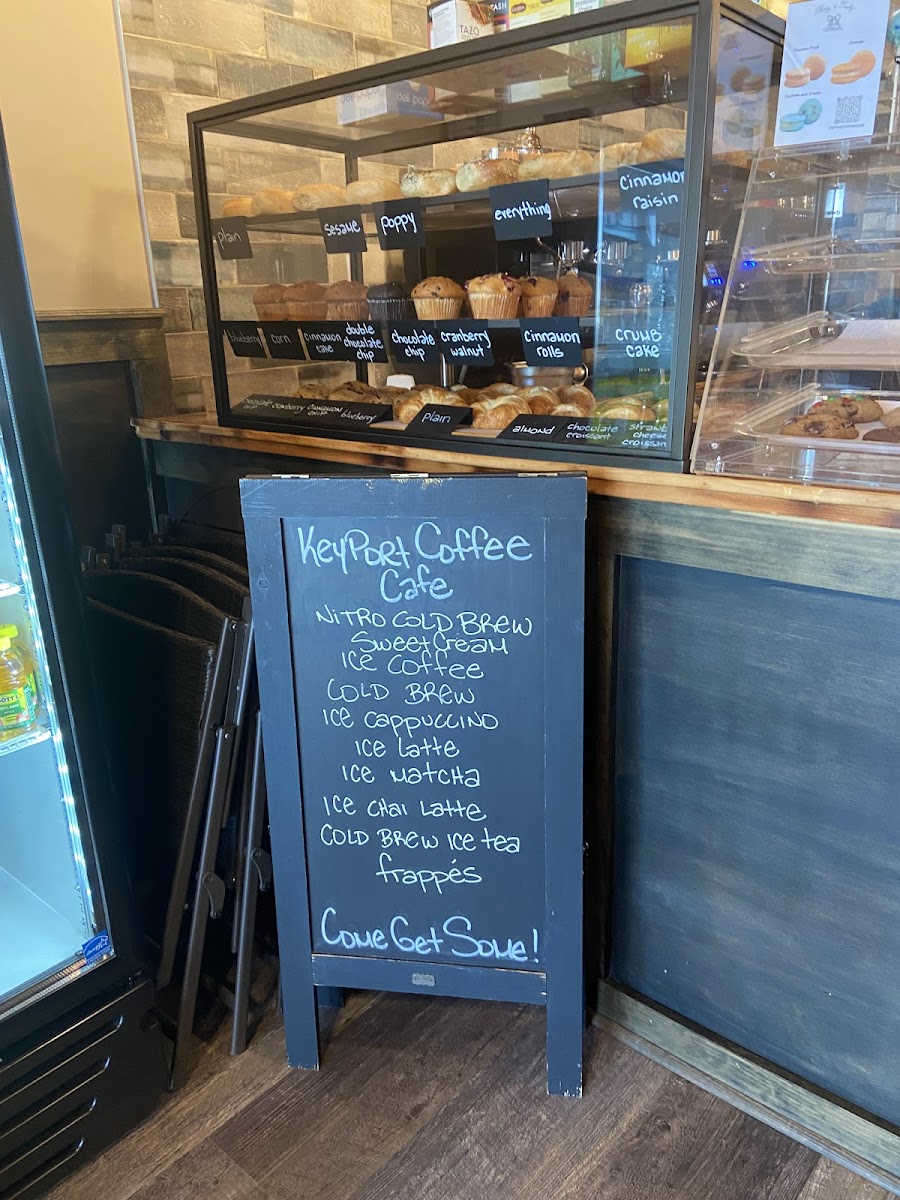 TAZO
plain
sesame
poppy
everything
cinnamon
raisin
blueberry
corn
cinnamon
cake
double
chocolate
chip
chocolate
chip
cranberry
walnut
cinnamon
rolls
crumb
cake
cranberry
cinnamon
chip
blueberry
plain
almond
chocolate
croissant
cheese
KeyPort Coffee
Cafe
NITRO COLD BREW
Sweet Cream
ICE COFFEE
COLD BREW
ICE CAPPUCCINO
ICE Latte
ICE Matcha
ICE CHAI Latte
COLD BREW ICE tea
frappés
Come Get Some!